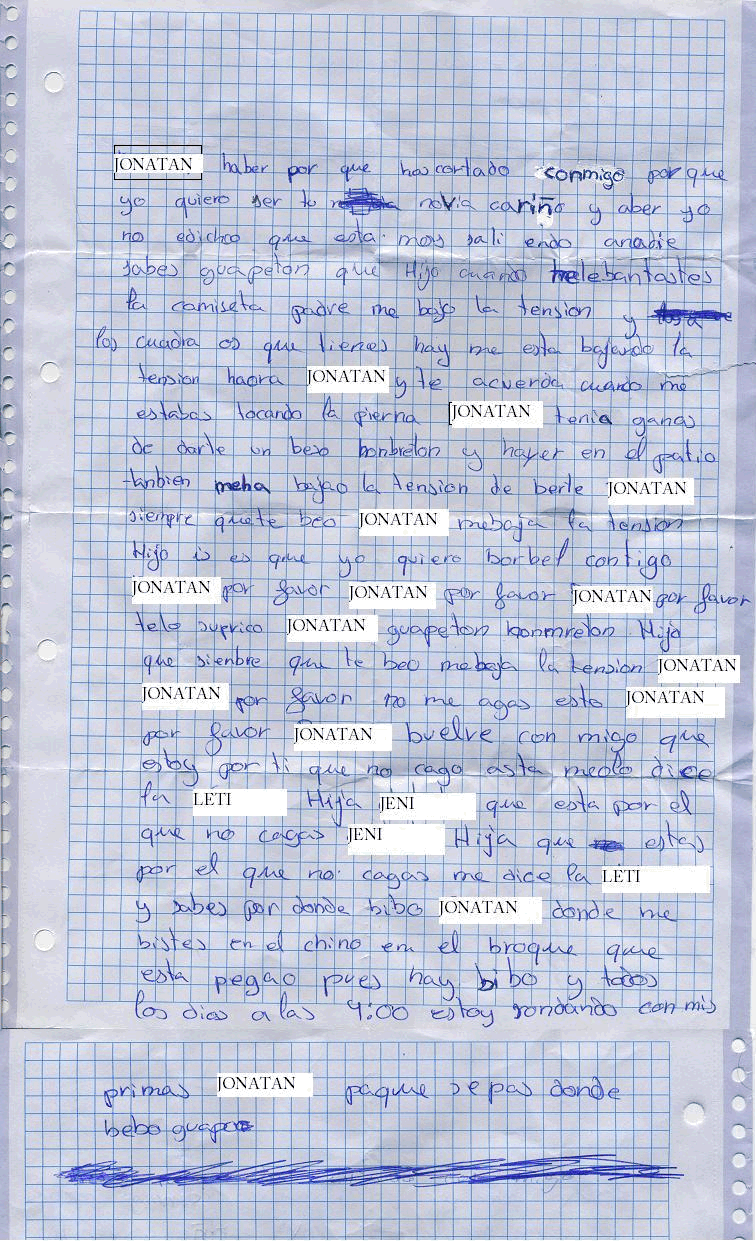 JONATAN haber por que hascortado conmigo porque
yo quiero ser tu novia cariño y aber yo
no edichco que esta mos sali endo anabie
sabes guapeton que Hijo cuando telebantastes
la camiseta padre me bajo la tension y
los cuadra os que tienes hay me esta bajando la
tension haora JONATAN y te acuerda cuando me
estabas tocando la pierna JONATAN tenia ganas
de darle un beso bonbreton y hayer en el patio
tanbien meha bajao la tension de berte JONATAN
siempre quete beo JONATAN mebaja la tension
Hijo is es que yo quiero borbel contigo
JONATAN por favor JONATAN por favor JONATAN por favor
telo suprico JONATAN guapeton bonmreton Hijo
que sienbre que te beo mebaja la tension JONATAN
JONATAN por favor no me agas esto JONATAN
por favor JONATAN buelve con migo que
estoy por ti que no cago asta melo dice
la LETI Hija JENI que esta por el
que no cagas JENI Hija que estas
por el que no cagas me dice la LETI
y sabes por donde bibo JONATAN donde me
bistes en el chino em el broque que
esta pegao pues hay bibo y todos
los dias a las 4:00 estoy rondando con mis
primas JONATAN paque sepas donde
bebo guapo